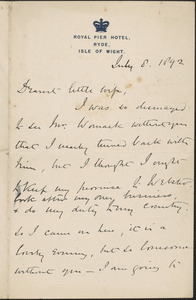 ROYAL PIER HOTEL,
RYDE,
ISLE OF WIGHT.
July 8. 1892
Dearest little
I was so dismayed
to see Mr. Womack without you
that I nearly turned back with
him, but I thought I ought
to keep my promise to Webster
look after my own business,
& do my duty to my country.
So I came on here, it is a
lovely evening, but so lonesome
without you — I am going to